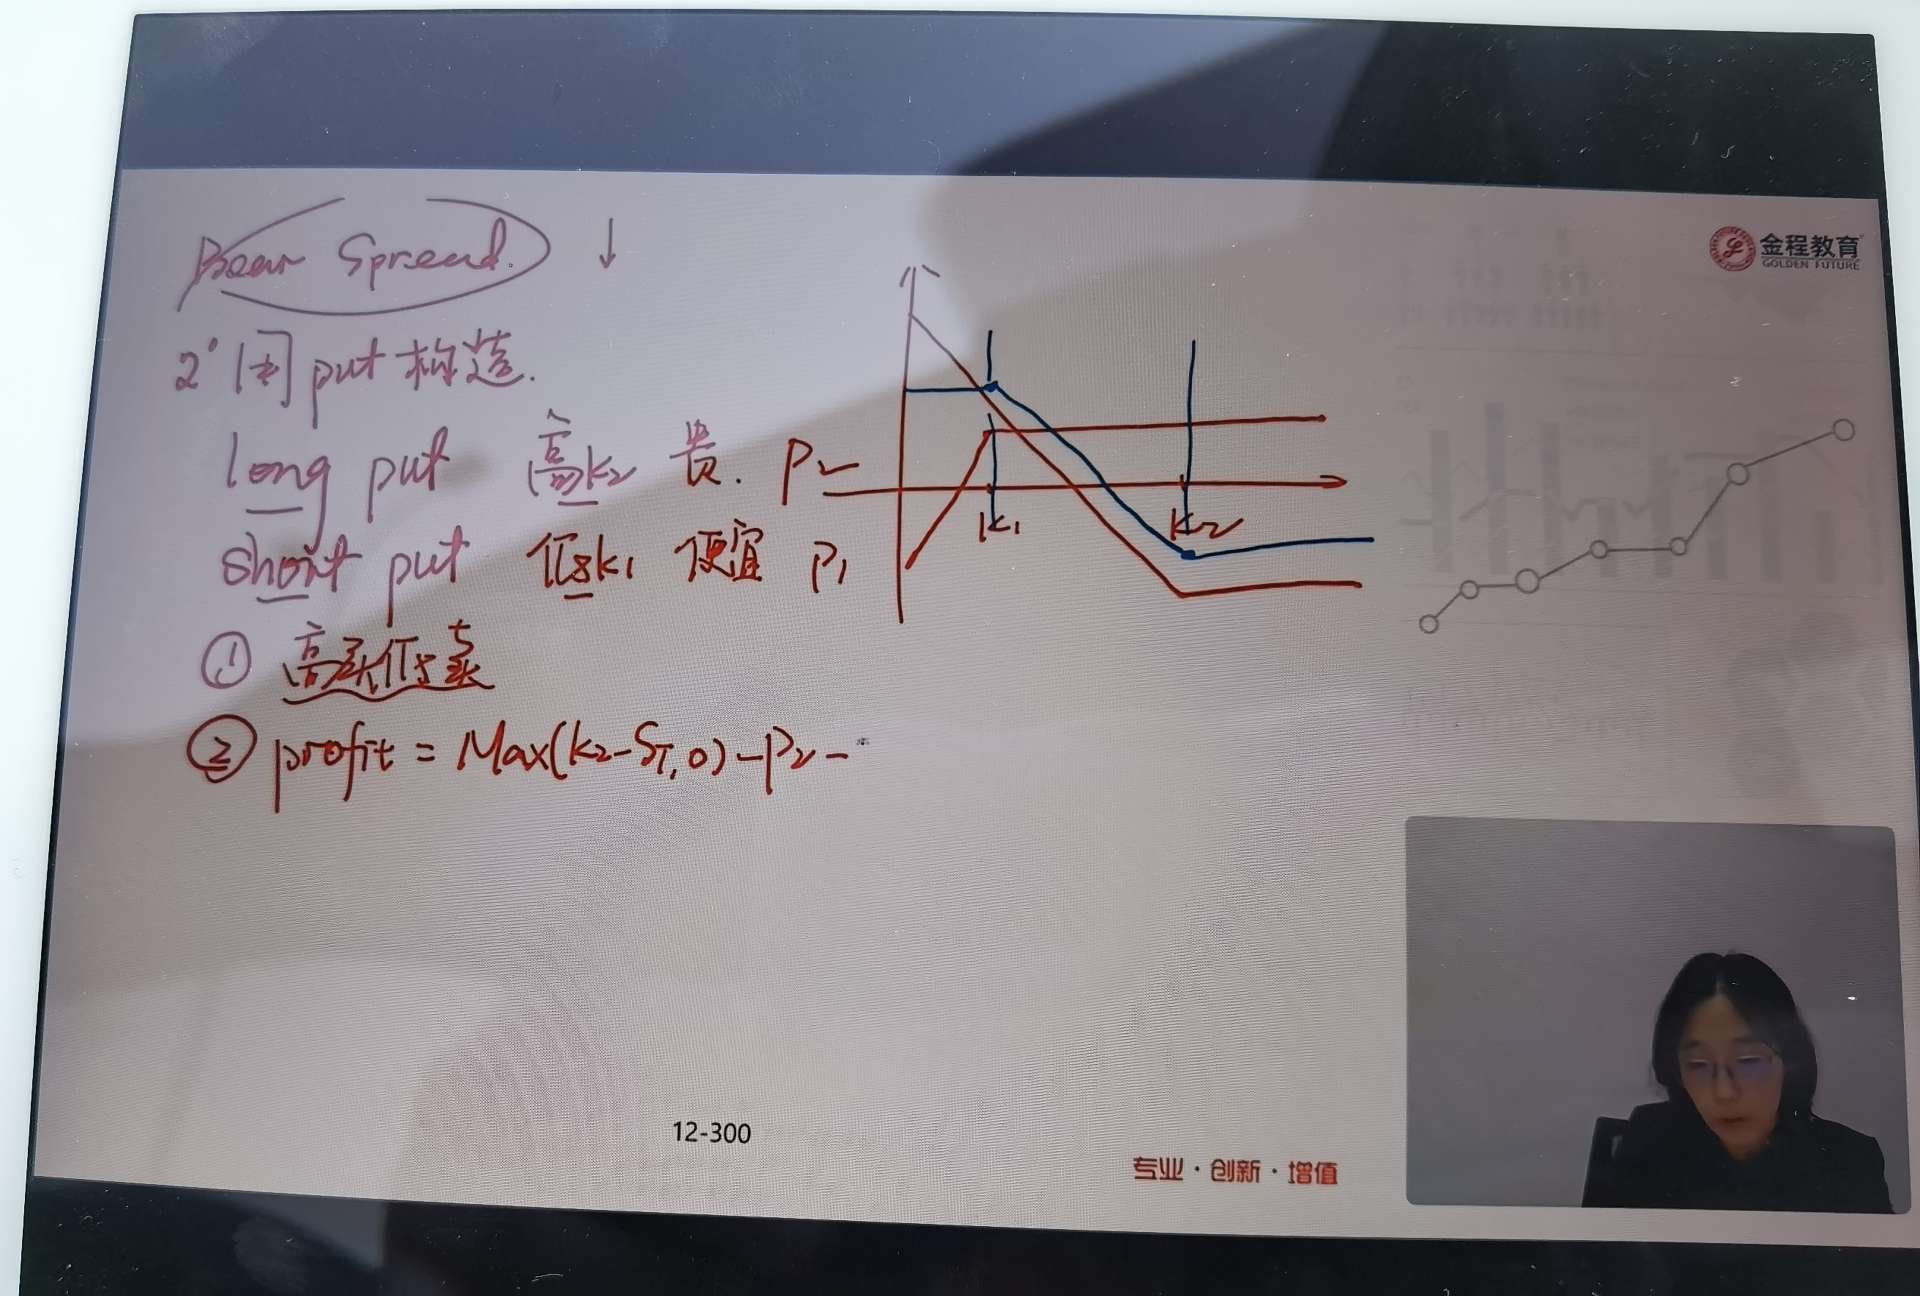 Bear Spread. ↓
2° 用 put 构造.
long put 高k₂ 贵. P₂
short put 低k₁ 便宜 P₁
① 高买低卖
② profit = Max(k₂-S_T, 0) - P₂ -
k₁ k₂
金程教育
GOLDEN FUTURE
12-300
专业·创新·增值